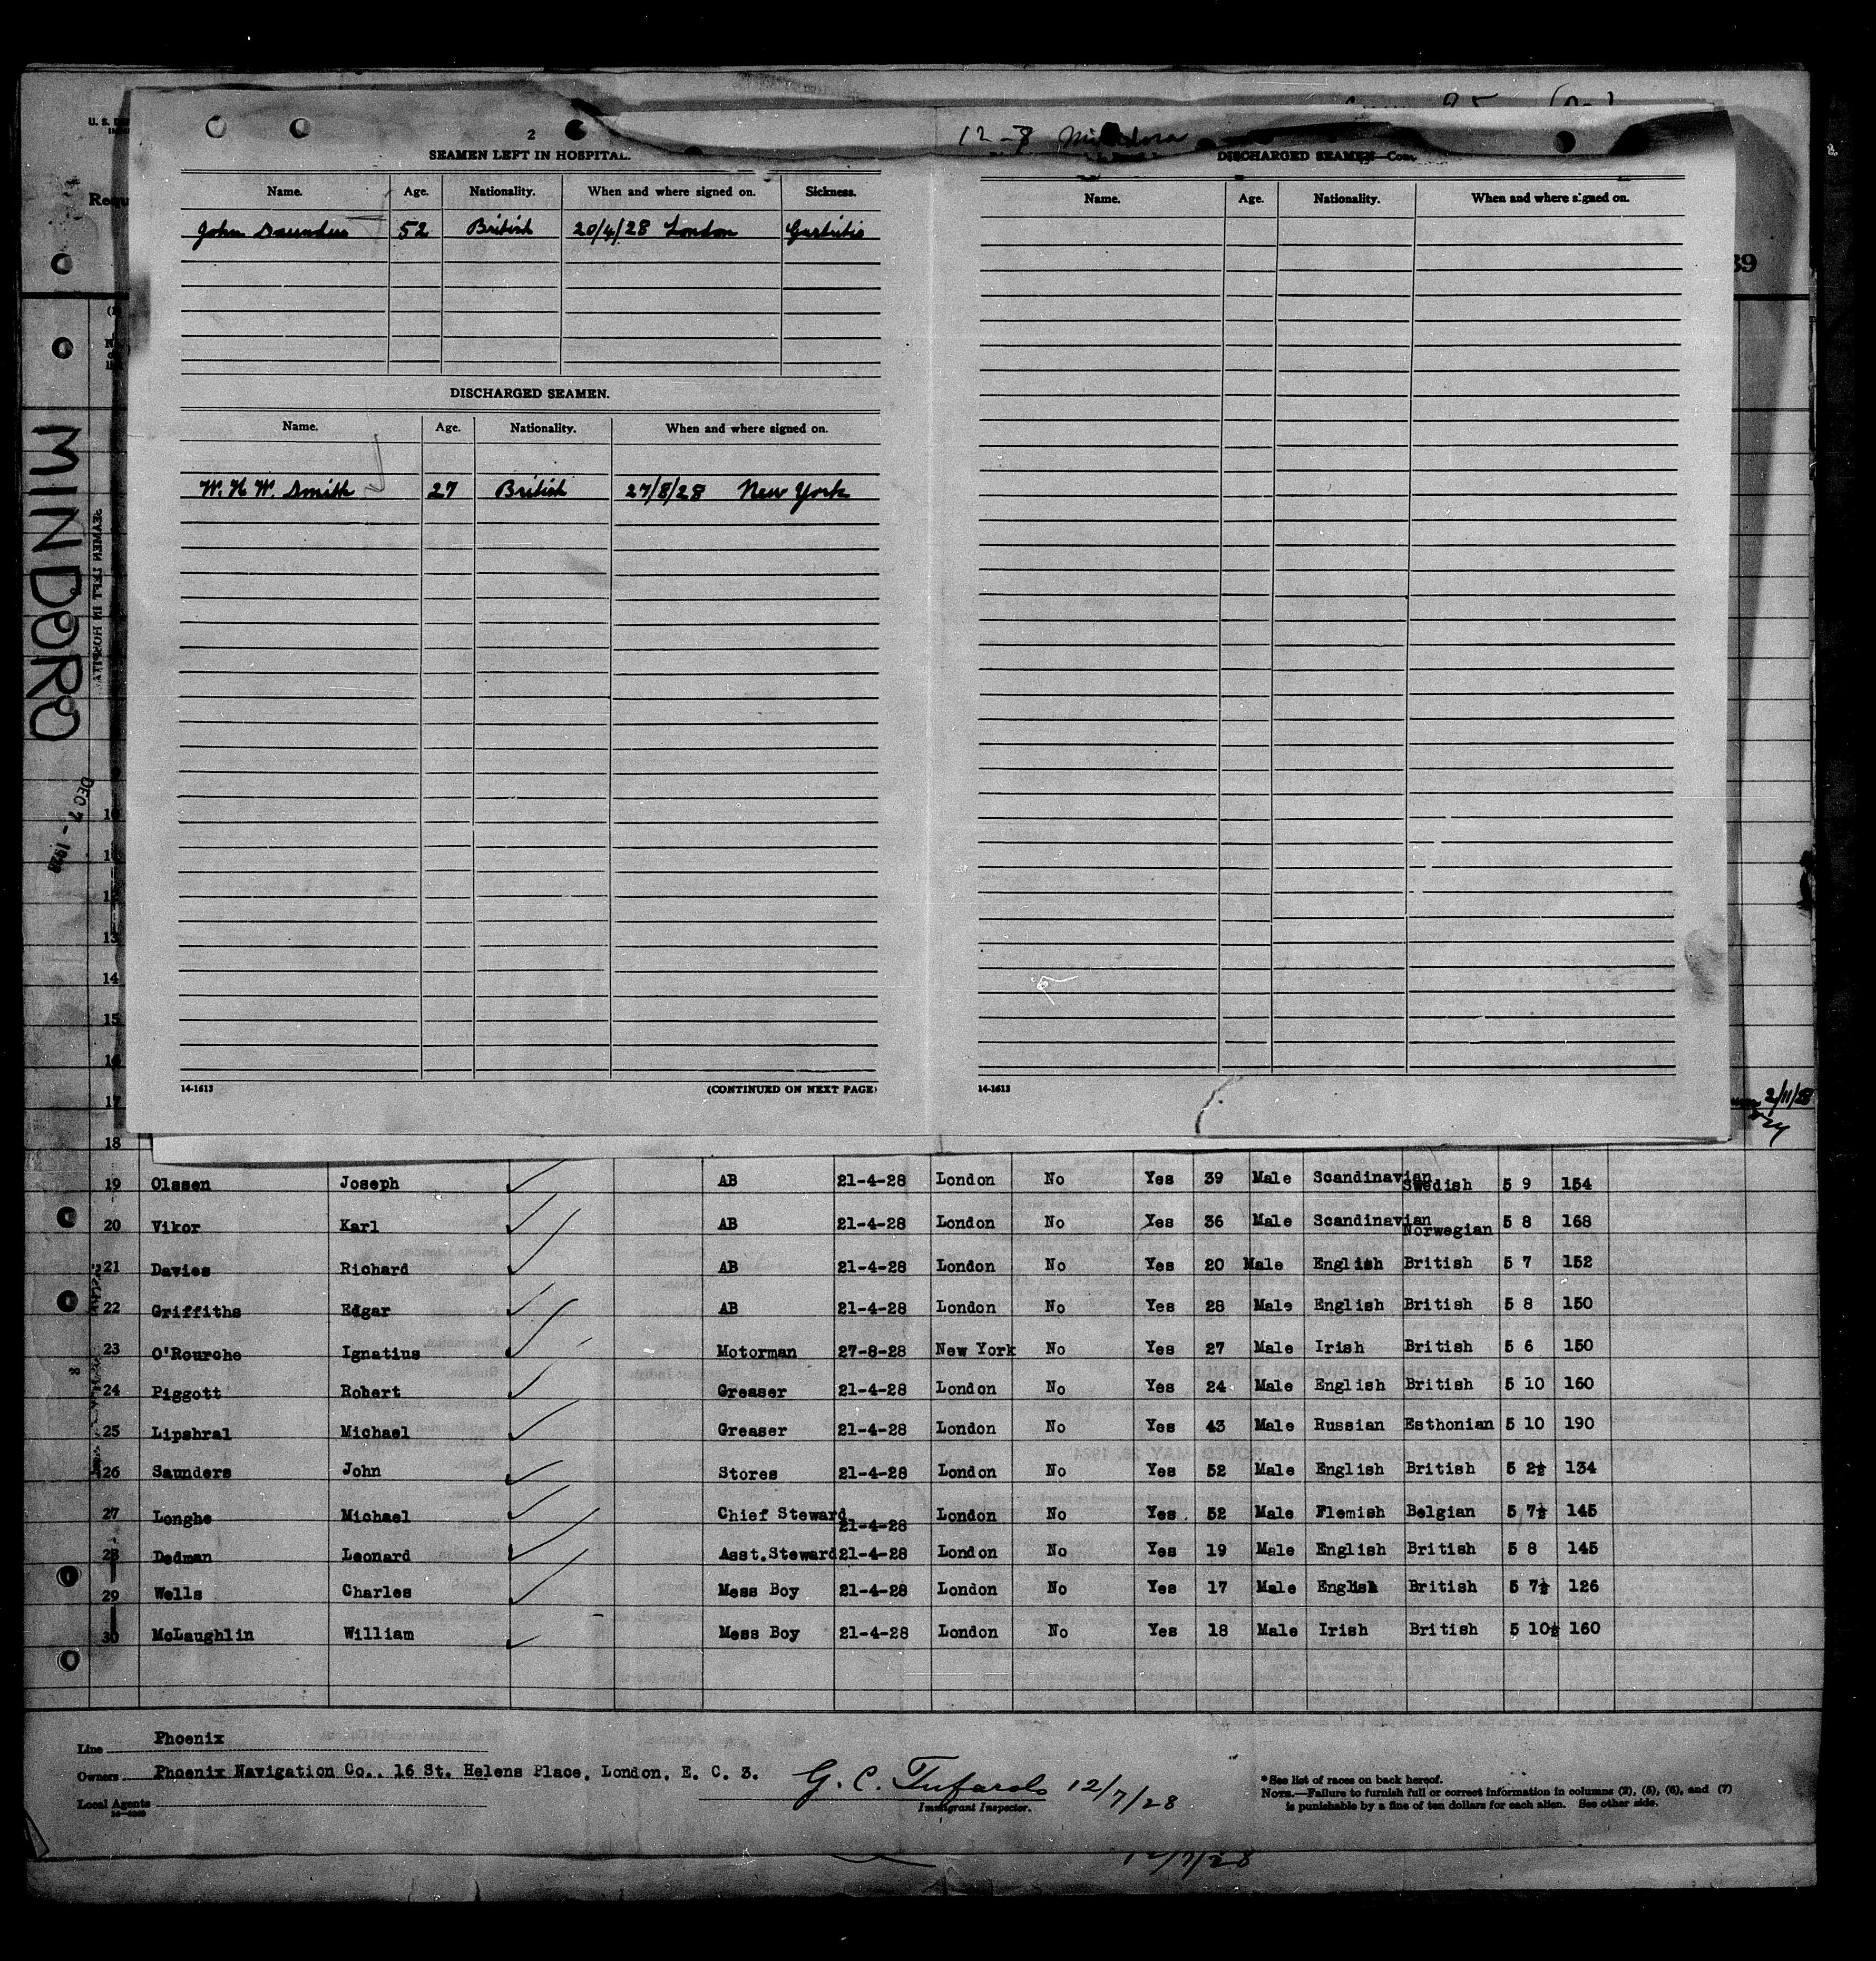 2
SEAMEN LEFT IN HOSPITAL.
Name. Age. Nationality. When and where signed on. Sickness.
John Saunders 52 British 20/4/28 London Gastritis
DISCHARGED SEAMEN.
Name. Age. Nationality. When and where signed on.
W. H. W. Smith 27 British 27/8/28 New York
14-1613 (CONTINUED ON NEXT PAGE)
12-7
DISCHARGED SEAMEN—Con.
Name. Age. Nationality. When and where signed on.
14-1613
U. S.
Requ
39
MINDORO
SEAMEN LEFT IN HOSPITAL.
DEC 7 - 1928
10
11
12
13
14
15
16
17 2/11/28
18
19 Olssen Joseph AB 21-4-28 London No Yes 39 Male Scandinavian Swedish 5 9 154
20 Vikor Karl AB 21-4-28 London No Yes 36 Male Scandinavian Norwegian 5 8 168
21 Davies Richard AB 21-4-28 London No Yes 20 Male English British 5 7 152
22 Griffiths Edgar AB 21-4-28 London No Yes 28 Male English British 5 8 150
23 O'Rourche Ignatius Motorman 27-8-28 New York No Yes 27 Male Irish British 5 6 150
24 Piggott Robert Greaser 21-4-28 London No Yes 24 Male English British 5 10 160
25 Lipshral Michael Greaser 21-4-28 London No Yes 43 Male Russian Esthonian 5 10 190
26 Saunders John Stores 21-4-28 London No Yes 52 Male English British 5 2½ 134
27 Longhe Michael Chief Steward 21-4-28 London No Yes 52 Male Flemish Belgian 5 7½ 145
28 Dedman Leonard Asst.Steward 21-4-28 London No Yes 19 Male English British 5 8 145
29 Wells Charles Mess Boy 21-4-28 London No Yes 17 Male English British 5 7½ 126
30 McLaughlin William Mess Boy 21-4-28 London No Yes 18 Male Irish British 5 10½ 160
Line Phoenix
Owners Phoenix Navigation Co., 16 St. Helens Place, London, E. C. 3.
Local Agents
G. C. Tufarolo 12/7/28
Immigrant Inspector.
*See list of races on back hereof.
NOTE.—Failure to furnish full or correct information in columns (2), (5), (6), and (7)
is punishable by a fine of ten dollars for each alien. See other side.
12/7/28